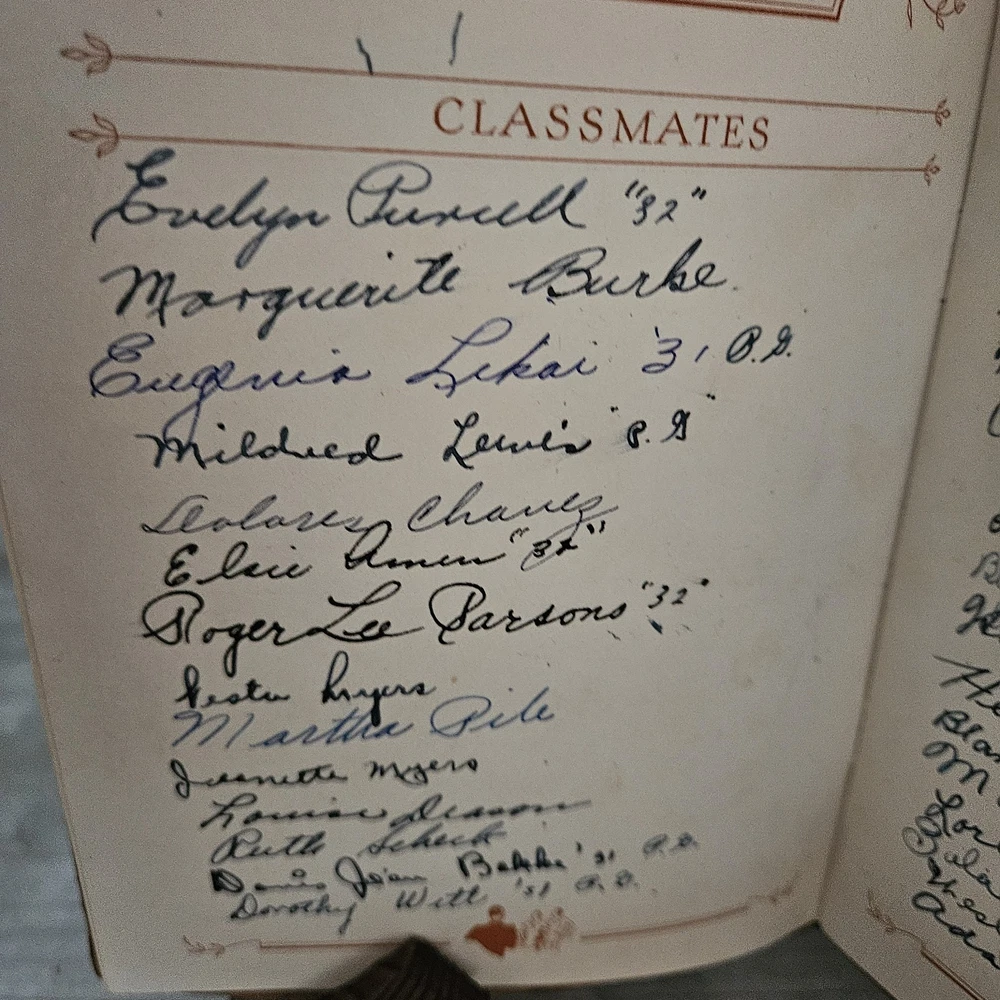 CLASSMATES
Evelyn Purcell "32"
Marguerite Burke
Eugenia Lekai '31 P.G.
Mildred Lewis "P.G"
Dolores Chavez
Elsie Amen "32"
Roger Lee Parsons "32"
Myers
Martha Pile
Jeanette Myers
Louise Deason
Ruth Scheck
Doris Jean '31 P.G.
Dorothy Witt '31 P.G.